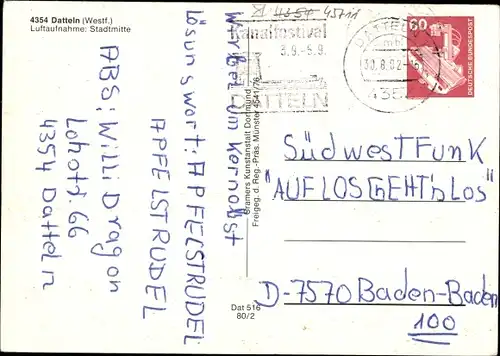 4354 Datteln (Westf.)
Luftaufnahme: Stadtmitte
ABS: Willi Dragon
Lohstr. 66
4354 Datteln
Lösungswort: APFELSTRUDEL
APFELSTRUDEL
Cramers Kunstanstalt Dortmund
Freigeg. d. Reg.-Präs. Münster 4541/76
Dat 516
80/2
4354
45711
Kanalfestival
3.9.-5.9.
DATTELN
DATTELN
30.8.82
435
60
DEUTSCHE BUNDESPOST
SÜdwestFunk
"AUFLOSGEHT'sLos"
D-7570 Baden-Baden
100